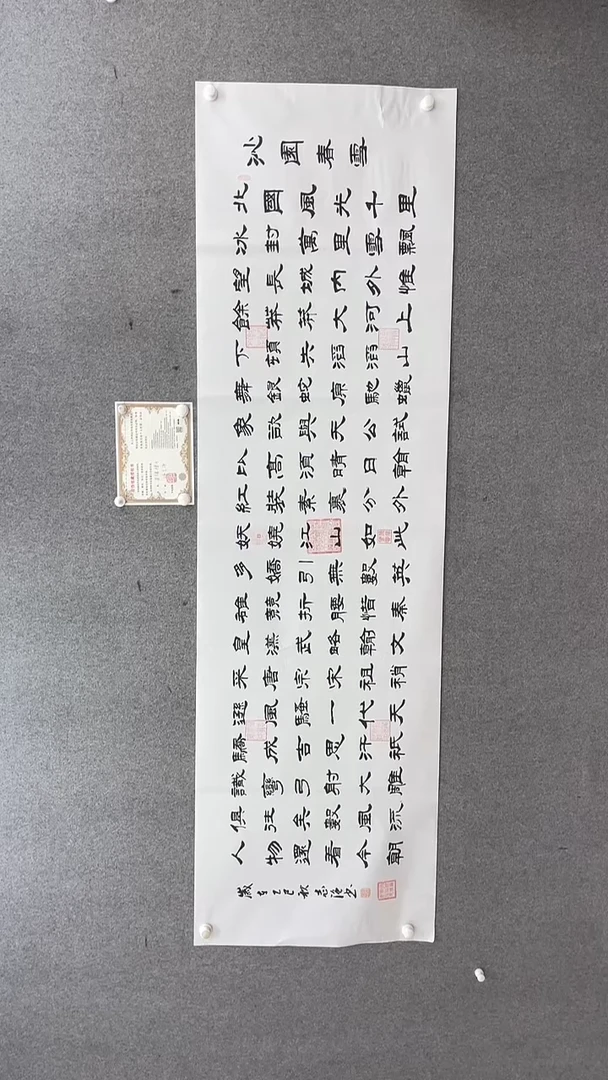 沁園春雪
北國風光千里
冰封萬里雪飄
望長城內外惟
餘莽莽大河上
下頓失滔滔山
舞銀蛇原馳蠟
象欲與天公試
比高須晴日翰
紅裝素裹分外
妖嬈江山如此
多嬌引無數英
雄競折腰惜秦
皇漢武略輸文
采唐宗宋祖稍
遜風騷一代天
驕成吉思汗祇
識彎弓射大雕
俱往矣數風流
人物還看今朝
歲在乙巳秋志書